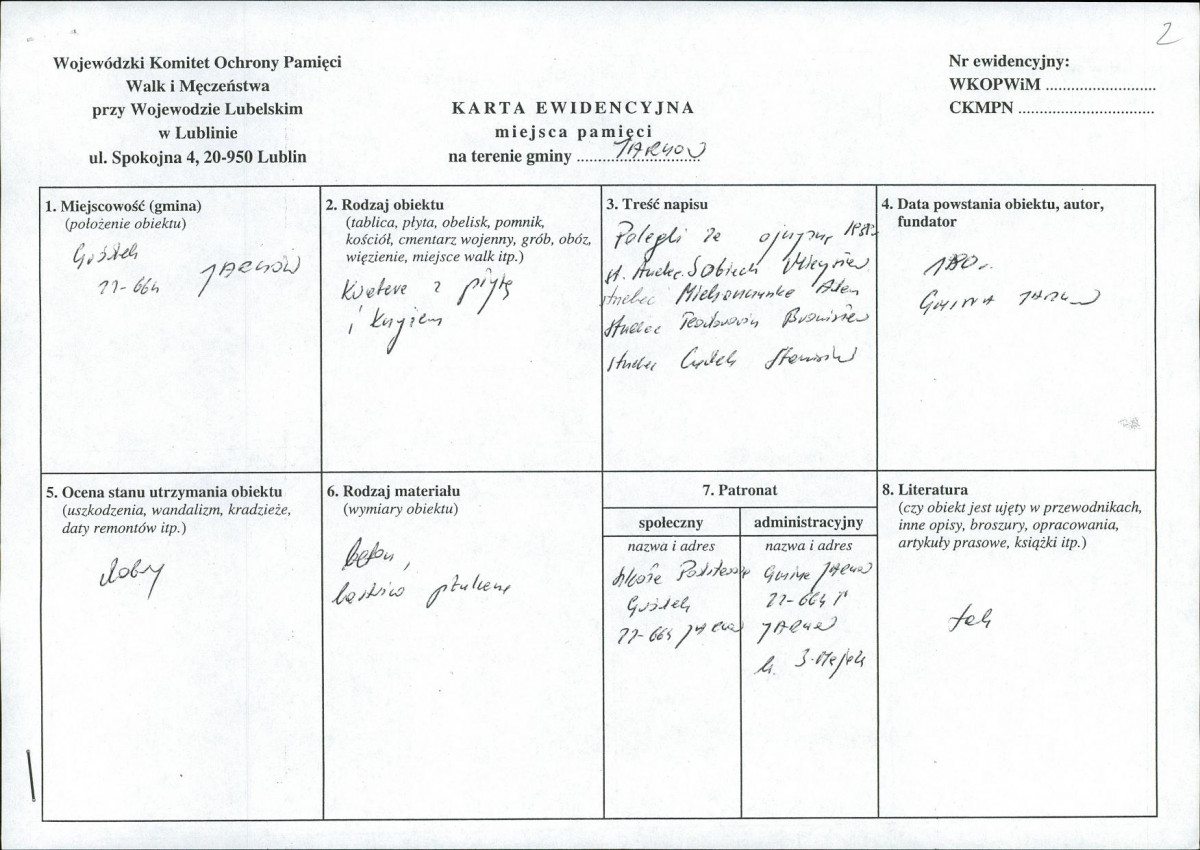 2
Wojewódzki Komitet Ochrony Pamięci
Walk i Męczeństwa
przy Wojewodzie Lubelskim
w Lublinie
ul. Spokojna 4, 20-950 Lublin
KARTA EWIDENCYJNA
miejsca pamięci
na terenie gminy JARCZÓW
Nr ewidencyjny:
WKOPWiM
CKMPN
1. Miejscowość (gmina)
(położenie obiektu)
Gródek
22-664 JARCZÓW
2. Rodzaj obiektu
(tablica, płyta, obelisk, pomnik,
kościół, cmentarz wojenny, grób, obóz,
więzienie, miejsce walk itp.)
Kwatera z płytą
i krzyżem
3. Treść napisu
Polegli za ojczyznę
st. strzelec Sobiech
strzelec Adam
strzelec Bronisław
strzelec Stanisław
4. Data powstania obiektu, autor,
fundator
Gmina Jarczów
5. Ocena stanu utrzymania obiektu
(uszkodzenia, wandalizm, kradzieże,
daty remontów itp.)
dobry
6. Rodzaj materiału
(wymiary obiektu)
beton,
lastrico płukane
7. Patronat
społeczny
nazwa i adres
Szkoła Podstawowa
Gródek
22-664 Jarczów
administracyjny
nazwa i adres
Gmina Jarczów
22-664
Jarczów
ul. 3-Maja
8. Literatura
(czy obiekt jest ujęty w przewodnikach,
inne opisy, broszury, opracowania,
artykuły prasowe, książki itp.)
tak